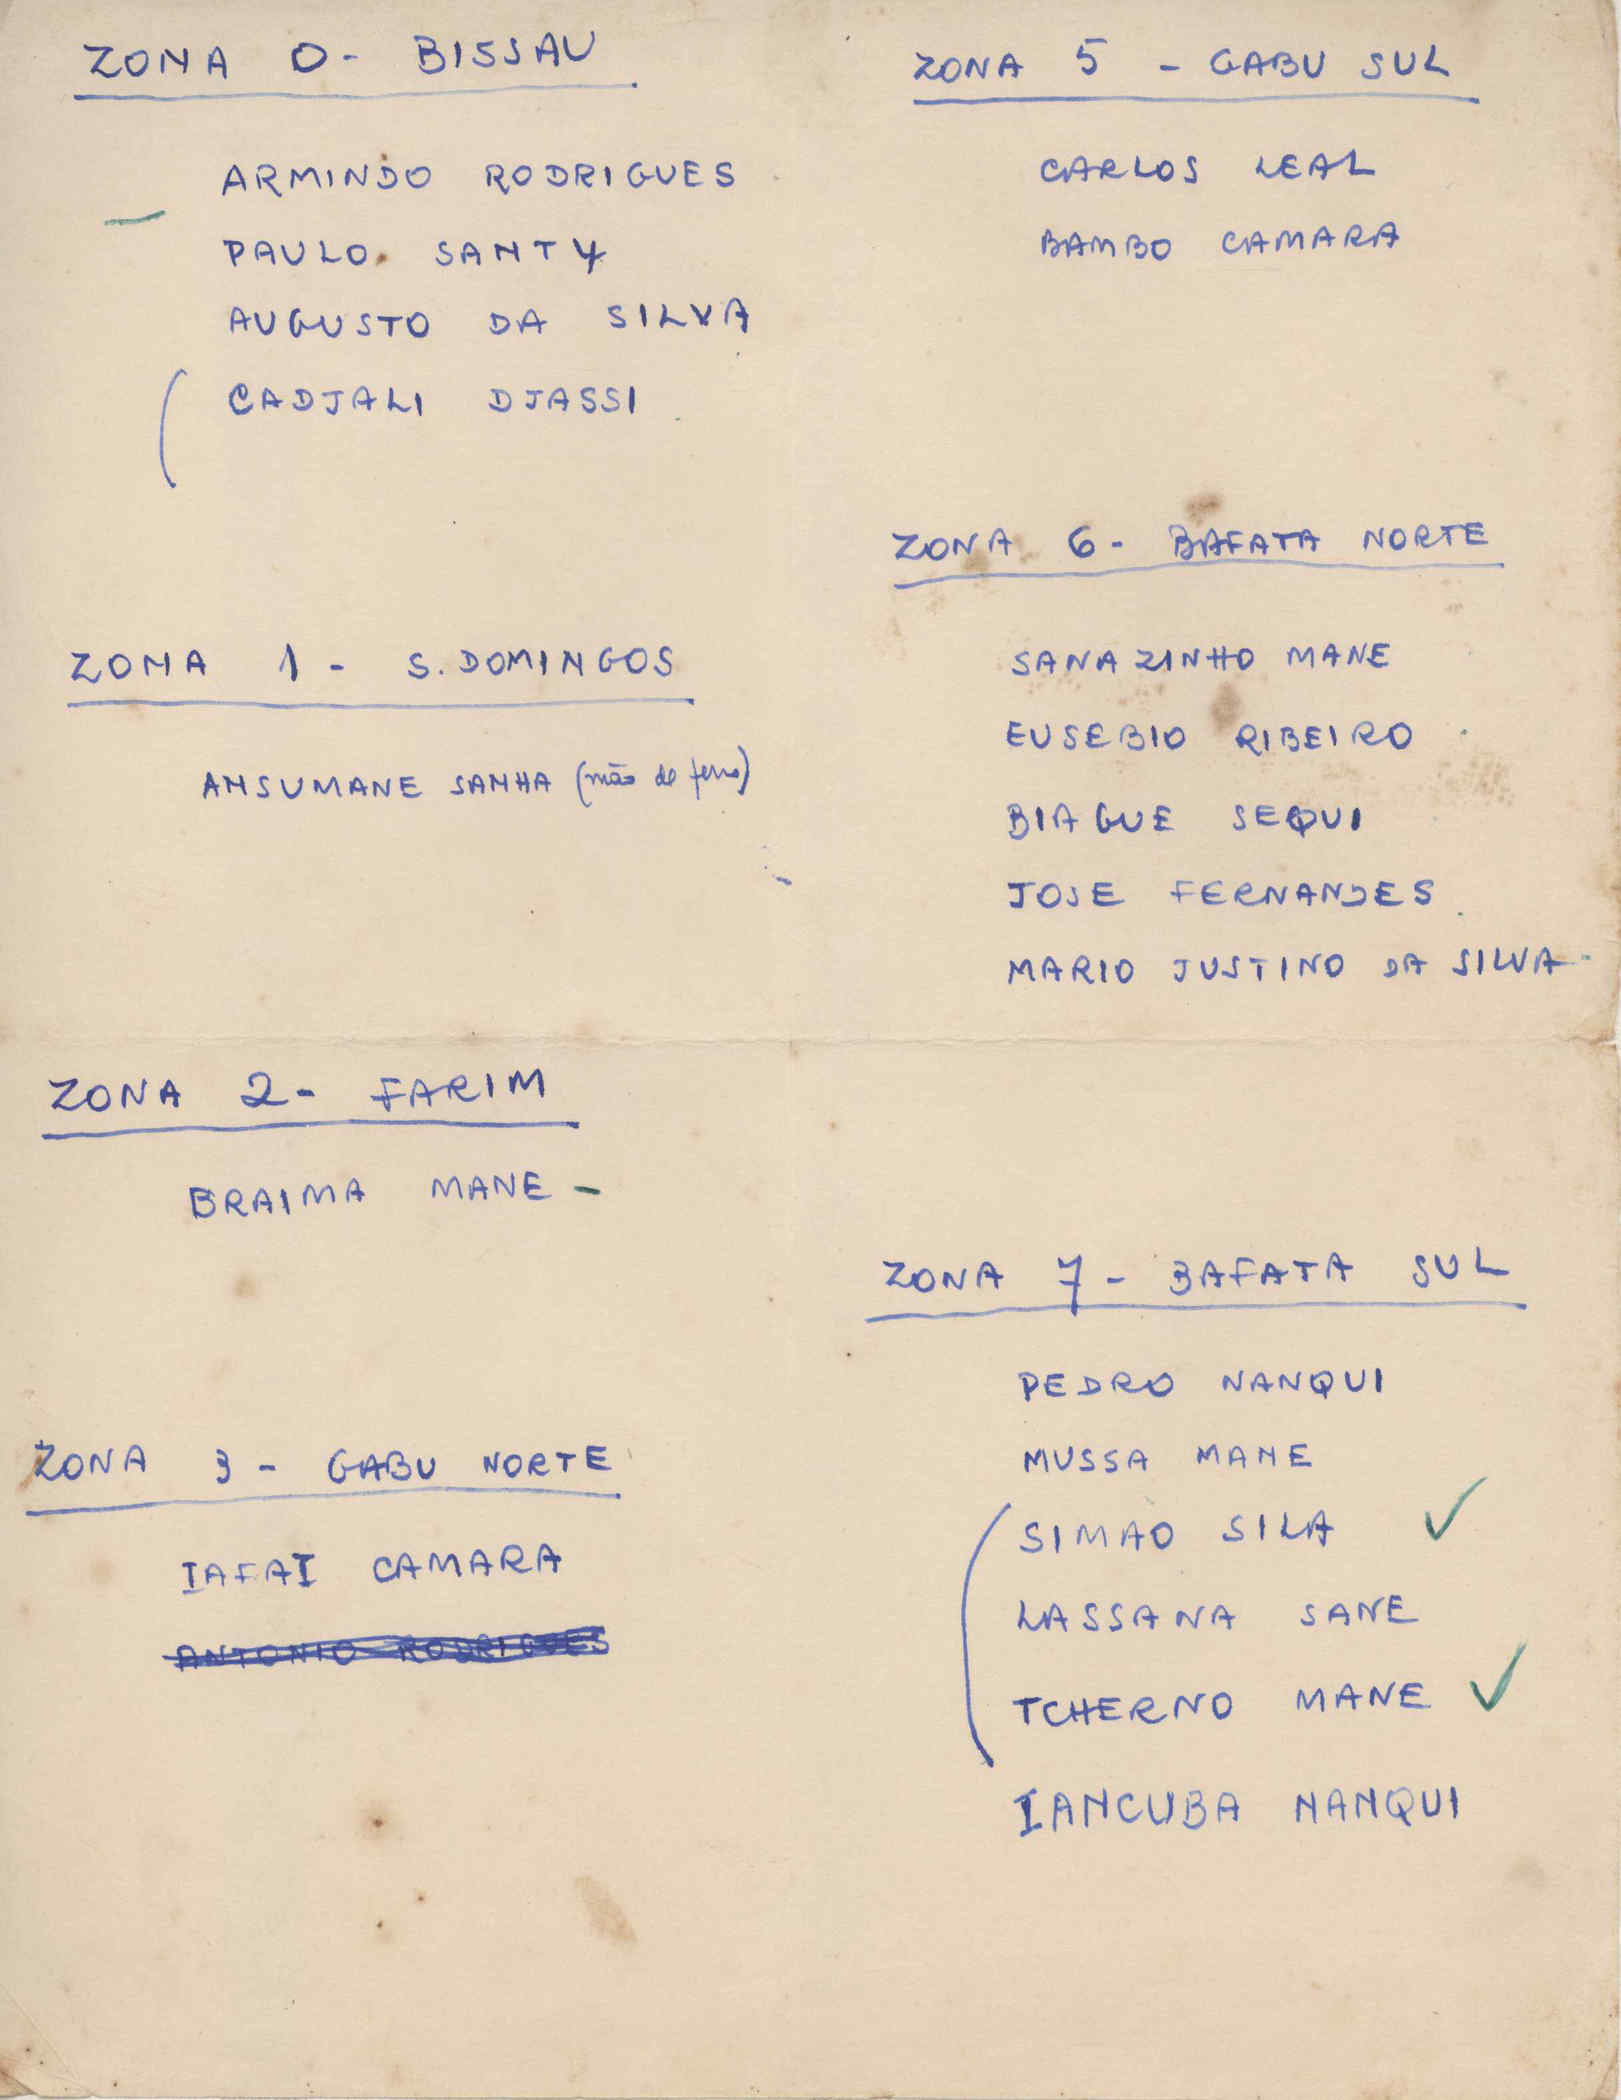 ZONA 0 - BISSAU
ARMINDO RODRIGUES
PAULO SANTY
AUGUSTO DA SILVA
CADJALI DJASSI
ZONA 1 - S. DOMINGOS
ANSUMANE SANHA (mão de ferro)
ZONA 2 - FARIM
BRAIMA MANE -
ZONA 3 - GABU NORTE
IAFAI CAMARA
ANTONIO RODRIGUES
ZONA 5 - GABU SUL
CARLOS LEAL
BAMBO CAMARA
ZONA 6 - BAFATA NORTE
SANAZINHO MANE
EUSEBIO RIBEIRO
BIAGUE SEQUI
JOSE FERNANDES
MARIO JUSTINO DA SILVA
ZONA 7 - BAFATA SUL
PEDRO NANQUI
MUSSA MANE
SIMAO SILA ✓
LASSANA SANE
TCHERNO MANE ✓
IANCUBA NANQUI